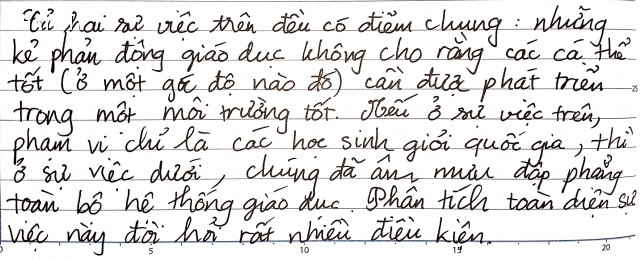 Cả hai sự việc trên đều có điểm chung : những
kẻ phản động giáo dục không cho rằng các cá thể
tốt (ở một góc độ nào đó) cần được phát triển
trong một môi trường tốt. Nếu ở sự việc trên,
phạm vi chỉ là các học sinh giỏi quốc gia, thì
ở sự việc dưới, chúng đã âm mưu đập phẳng
toàn bộ hệ thống giáo dục. Phân tích toàn diện sự
việc này đòi hỏi rất nhiều điều kiện.
25
0 5 10 15 20